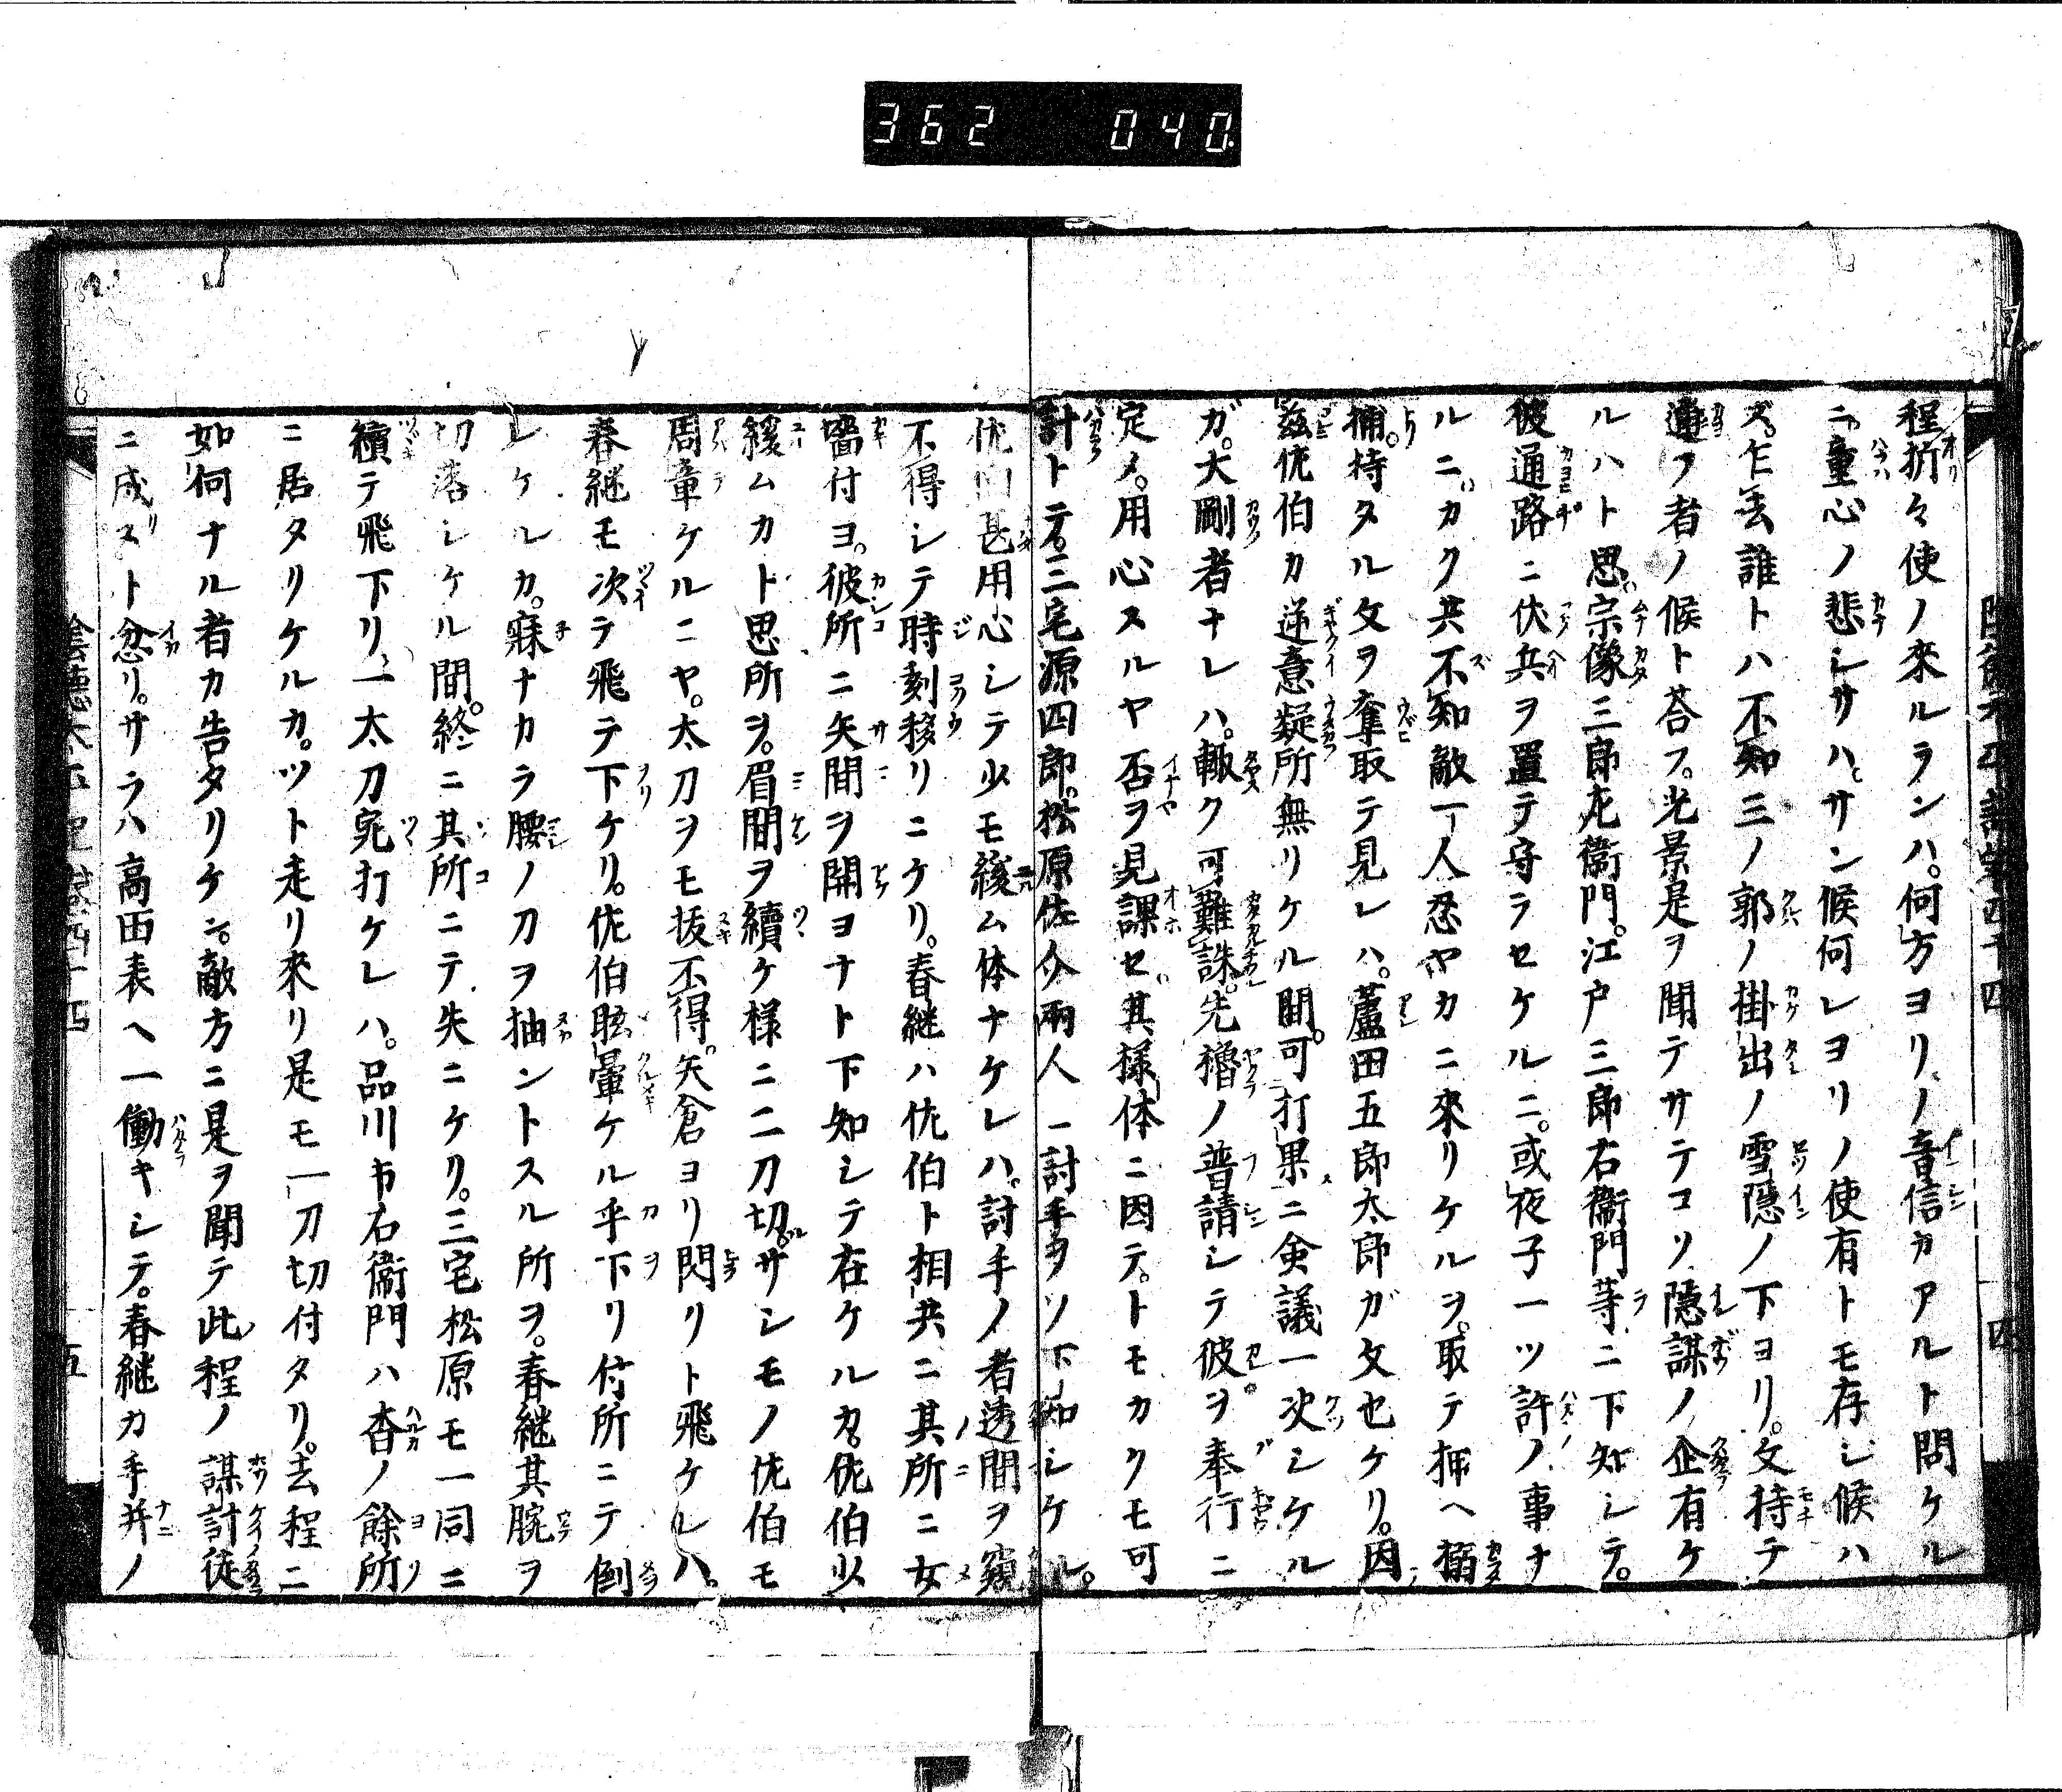 362 040
程折々使ノ來ルランハ。何方ヨリノ音信カアルト問ケル
ニ。童心ノ悲シサハ。サン候何レヨリノ使有トモ存ジ候ハ
ズ。乍去誰トハ不知三ノ郭ノ掛出ノ雪隠ノ下ヨリ。文持テ
通フ者ノ候ト荅フ。光景是ヲ聞テサテコソ隠謀ノ企有ケ
ルハト思。宗像三郎左衞門。江戸三郎右衞門等ニ下知シテ。
彼通路ニ伏兵ヲ置テ守ラセケルニ。或夜子一ツ許ノ事ナ
ルニ。カク共不知敵一人忍ヤカニ來リケルヲ。取テ押ヘ搦
捕。持タル文ヲ奪取テ見レハ。蘆田五郎太郎ガ文也ケリ。因
茲佐伯カ逆意疑所無リケル間。可打果ニ僉議一決シケル
ガ。大剛者ナレハ。輙ク可難誅。先櫓ノ普請シテ彼ヲ奉行ニ
定メ。用心スルヤ否ヲ見課セ。其様体ニ因テ。トモカクモ可
計トテ。三宅源四郎。松原佐介兩人ニ討手ヲソ下知シケル。
佐伯甚用心シテ少モ緩ム体ナケレハ。討手ノ者透間ヲ窺
不得シテ時刻移リニケリ。春継ハ佐伯ト相共ニ其所ニ女
墻付ヨ。彼所ニ矢間ヲ開ヨナト下知シテ在ケルカ。佐伯少
緩ムカト思所ヲ。眉間ヲ續ケ様ニ二刀切。サシモノ佐伯モ
周章ケルニヤ。太刀ヲモ抜不得。矢倉ヨリ閃リト飛ケレハ。
春継モ次テ飛テ下ケリ。佐伯眩暈ケル乎下リ付所ニテ倒
レケルカ。寐ナカラ腰ノ刀ヲ抽ントスル所ヲ。春継其腕ヲ
切落シケル間。終ニ其所ニテ失ニケリ。三宅松原モ一同ニ
續テ飛下リ、一太刀宛打ケレハ。品川市右衞門ハ杳ノ餘所
ニ居タリケルカ。ツト走リ來リ是モ一刀切付タリ。去程ニ
如何ナル者カ告タリケン。敵方ニ是ヲ聞テ此程ノ謀計徒
ニ成ヌト忿リ。サラハ高田表ヘ一働キシテ。春継カ手并ノ
五